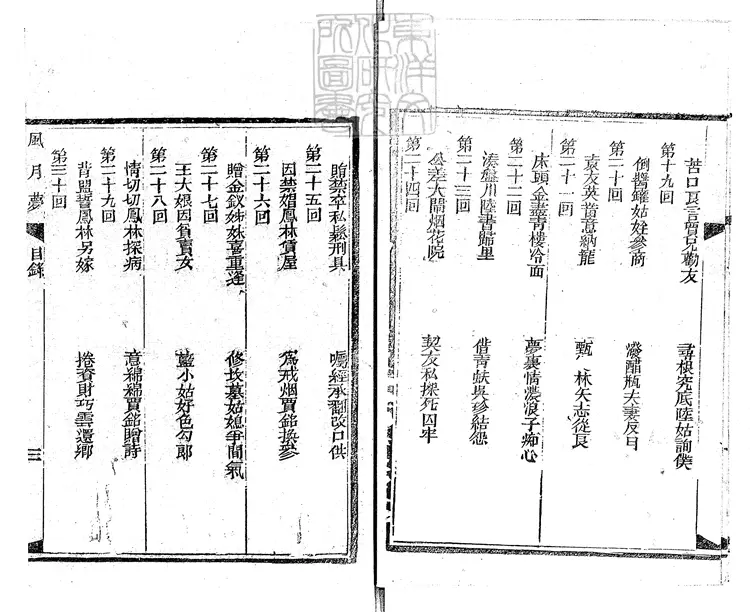 苦口良言賈兒勸友 尋根究底陸姑詢僕
第十九回
倒醋罐姑姪參商 潑醋瓶夫妻反目
第二十回
袁友英昔意納寵 甄 林矢志從良
第二十一回
床頭金盡青樓冷面 夢裏情濃浪子痴心
第二十二回
湊盤川陸書歸里 借青蚨與珍結怨
第二十三回
公差大鬧烟花院 契友私探死囚牢
第二十四回
賄禁卒私鬆刑具 囑經承翻改口供
第二十五回
因禁娼鳳林賃屋 爲戒烟賈銘換參
第二十六回
贈金釵姊妹喜重逢 修坟墓姑媳爭閒氣
第二十七回
王大娘因貧賣女 藍小姑好色勾郎
第二十八回
情切切鳳林探病 意綿綿賈銘贈詩
第二十九回
背盟誓鳳林另嫁 捲資財巧雲還鄉
第三十回
風月夢 目錄 三
東洋文化研究所圖書